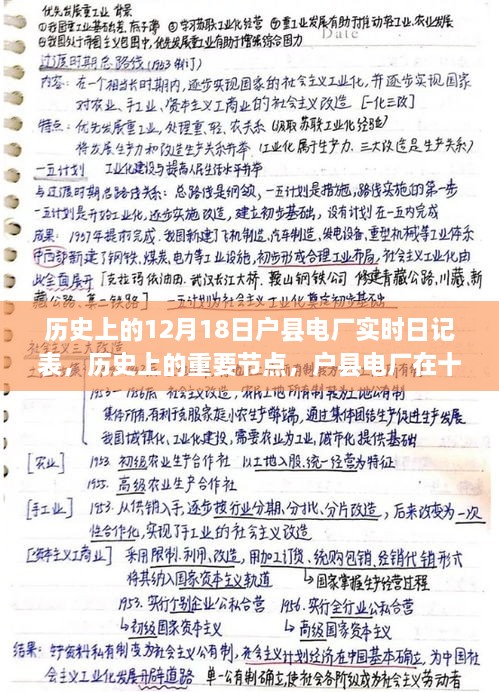 优先发展重工业 背景
①我国重工业基础差,底子薄 ②学习苏联工业化经营 ③重工业发展有助于推动轻工业、农业发展
④我国处于帝国主义包围中,优先发展重工业有助于增强综合国力
Date
过渡时期总路线 (1953制订)
内容: 在一个相当长时期内,逐步实现国家的社会主义工业化,并逐步实现国家
对农业、手工业、资本主义工商业的社会主义改造 [一化三改]
特点: 优先发展重工业,处理重、轻、农关系 (吸取苏联工业化经验)
将发展生产力和改造生产关系并举 (工业化属于生产力,三大改造是生产关系)
一五计划 工业化建设与提高人民生活水平并举
与过渡时期总路线关系: 总路线是纲领,一五计划是措施,路线实施的第一步
一五计划是开始工业化,逐步实施改造,建立初步基础,没有计划在一五内完成
成果: 1957年提前完成.我国新建了飞机制造,汽车制造,发电设备,重型机械等工业体系
中西部新建了钢铁,煤炭,电力等工业设施,初步形成合理工业布局,社会主义工业化由
此全面展开 [克拉玛依油田.武汉长江大桥.鞍山钢铁公司 修建青藏公路,川藏,新
历史上的12月18日户县电厂实时日记
表，历史上的重要节点，户县电厂在十
集体所有,有利于克服家庭小农生产弊端,通过集体团结生产促进生产发展
我国城镇化,工业化建设,需要农业为工业,城市化提供基础
[农业] 1953 初级农业生产合作社 以土地入股.统一经营为特征
1955. 高级农业生产合作社
[手工业] 1953.从供销入手,逐步按行业分期、分批、分片改造,后来改变为一次
性合作化,实现了手工业的社会主义改造
[资本主义工商业] 采用限制.利用.改造,用加工订货.统购包销.经销代销形式
将其纳入国家资本主义轨道 →国家掌握生产经营过程
1953.实行个别企业公私合营 1956.实行全行业公私合营
↳初级国家资本主义 ↳高级国家资本主义
结果: 生产资料私有制变为社会主义公有制,社会主义计划经济在中国基本确立,为中国社
会主义工业化发展开辟道路 单一公有制确立,使社会各阶级成为社会主义劳动者